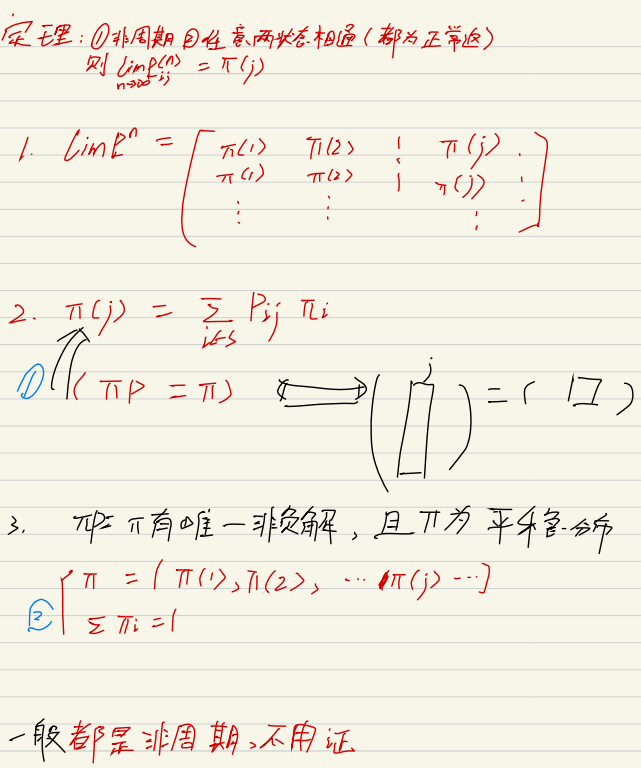 定理:①非周期②任意两状态相通(都为正常返)
则 lim n→∞ Pij(n) = π(j)
1. lim Pⁿ = [ π(1) π(2) ⋮ π(j) ⋮
π(1) π(2) π(j)
⋮ ⋮ ⋮ ]
2. π(j) = Σ i∈S Pij πi
① (πP = π) ⟺ ( j ) = ( )
3. πP = π有唯一非负解,且π为平稳分布
② { π = [π(1), π(2), … π(j) …]
Σ πi = 1
一般都是非周期,不用证